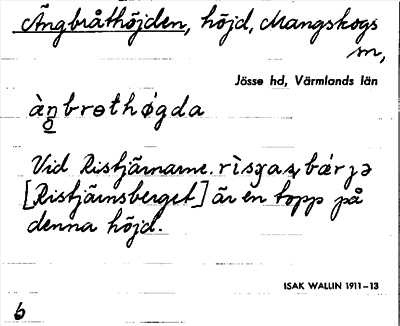 Ängbråthöjden, höjd, Mangskogs
sn,
Jösse hd, Värmlands län
àŋbrɵthǿgda
Vid Ristjärnarne. rìsɣaṣbǽrjə
[Ristjärnsberget] är en topp på
denna höjd.
ISAK WALLIN 1911–13
6